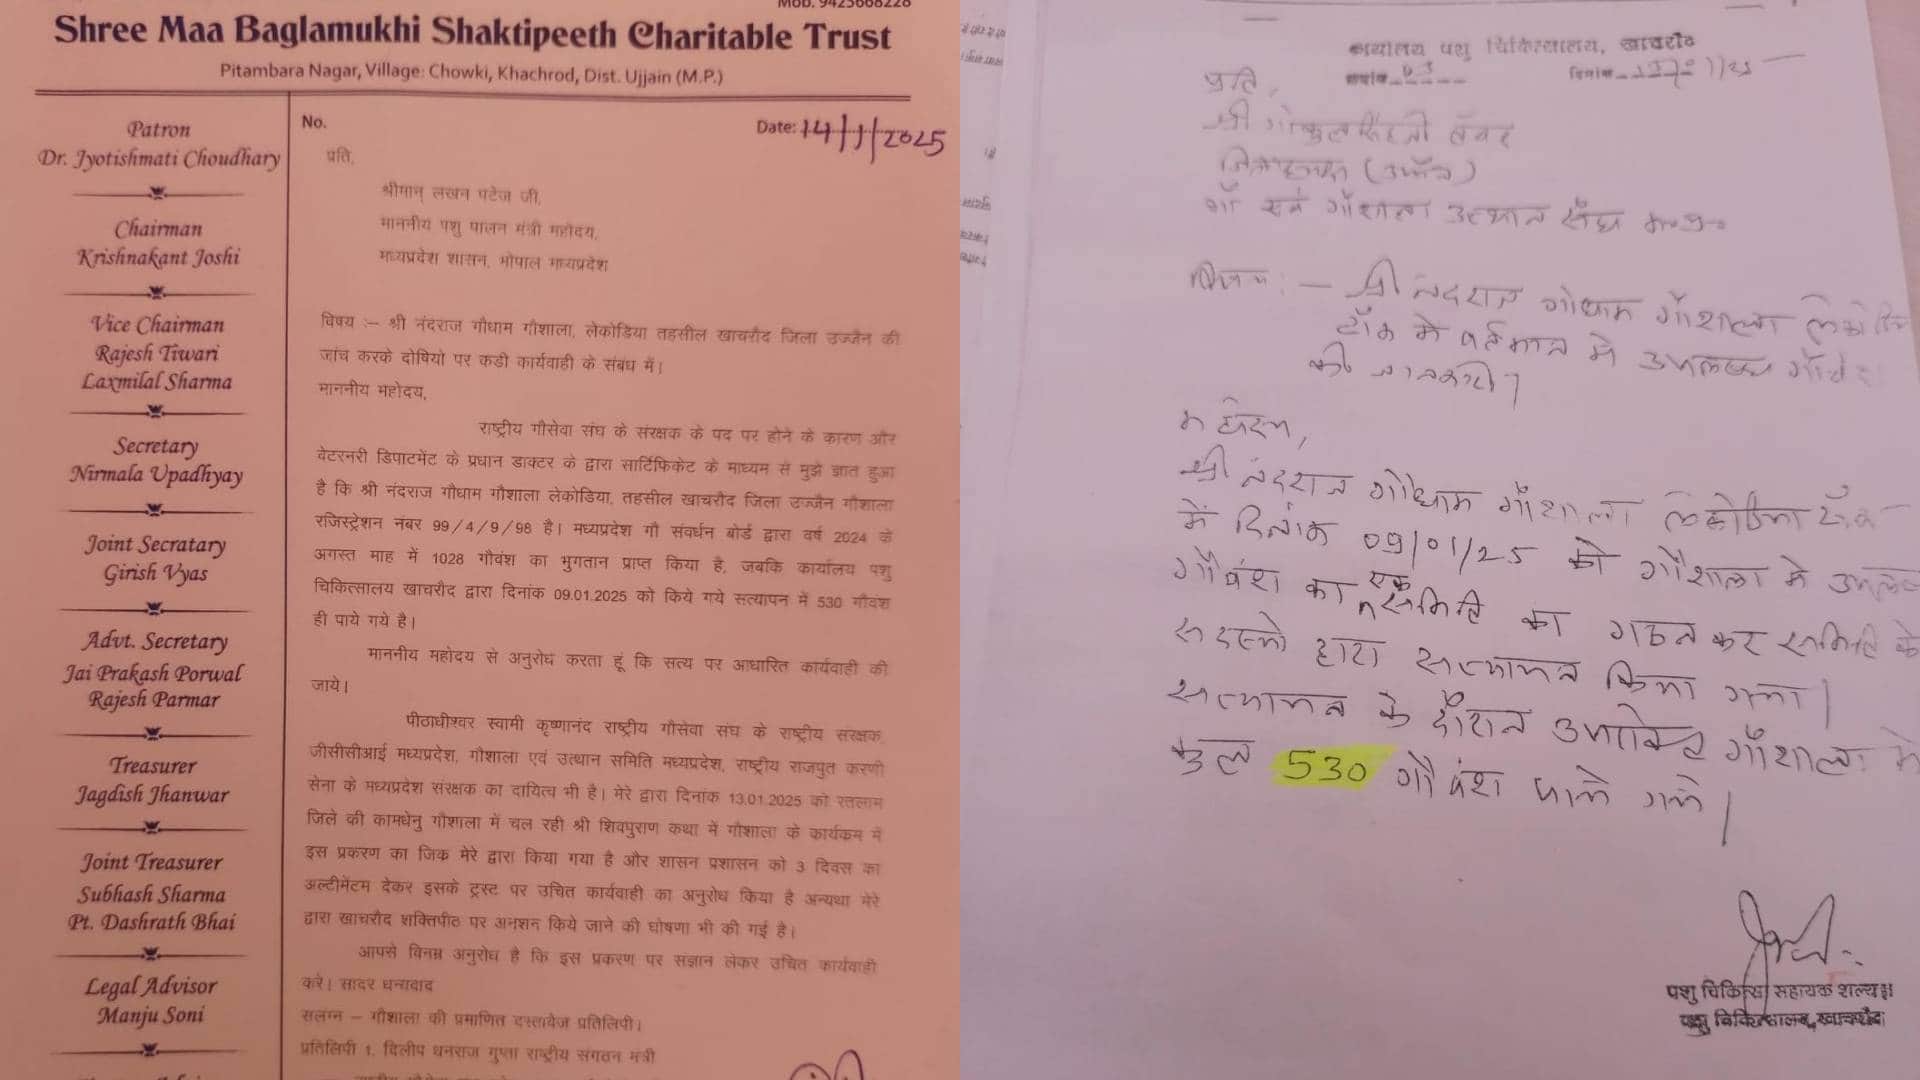 Mob. 9425668228
Shree Maa Baglamukhi Shaktipeeth Charitable Trust
Pitambara Nagar, Village: Chowki, Khachrod, Dist. Ujjain (M.P.)
Patron
Dr. Jyotishmati Choudhary
Chairman
Krishnakant Joshi
Vice Chairman
Rajesh Tiwari
Laxmilal Sharma
Secretary
Nirmala Upadhyay
Joint Secratary
Girish Vyas
Advt. Secretary
Jai Prakash Porwal
Rajesh Parmar
Treasurer
Jagdish Jhanwar
Joint Treasurer
Subhash Sharma
Pt. Dashrath Bhai
Legal Advisor
Manju Soni
No.
Date: 14/1/2025
प्रति,
श्रीमान् लखन पटेज जी,
माननीय पशु पालन मंत्री महोदय,
मध्यप्रदेश शासन, भोपाल मध्यप्रदेश
विषय :– श्री नंदराज गौधाम गौशाला, लेकोडिया तहसील खाचरौद जिला उज्जैन की
जांच करके दोषियो पर कडी कार्यवाही के संबंध में।
माननीय महोदय,
राष्ट्रीय गौसेवा संघ के संरक्षक के पद पर होने के कारण और
वेटरनरी डिपाटमेंट के प्रधान डाक्टर के द्वारा सार्टिफिकेट के माध्यम से मुझे ज्ञात हुआ
है कि श्री नंदराज गौधाम गौशाला लेकोडिया, तहसील खाचरौद जिला उज्जैन गौशाला
रजिस्ट्रेशन नंबर 99/4/9/98 है। मध्यप्रदेश गौ संवर्धन बोर्ड द्वारा वर्ष 2024 के
अगस्त माह में 1028 गौवंश का भुगतान प्राप्त किया है, जबकि कार्यालय पशु
चिकित्सालय खाचरौद द्वारा दिनांक 09.01.2025 को किये गये सत्यापन में 530 गौवंश
ही पाये गये है।
माननीय महोदय से अनुरोध करता हूं कि सत्य पर आधारित कार्यवाही की
जाये।
पीठाधीश्वर स्वामी कृष्णानंद राष्ट्रीय गौसेवा संघ के राष्ट्रीय संरक्षक,
जीसीसीआई मध्यप्रदेश, गौशाला एवं उत्थान समिति मध्यप्रदेश, राष्ट्रीय राजपुत करणी
सेना के मध्यप्रदेश संरक्षक का दायित्व भी है। मेरे द्वारा दिनांक 13.01.2025 को रतलाम
जिले की कामधेनु गौशाला में चल रही श्री शिवपुराण कथा में गौशाला के कार्यकम में
इस प्रकरण का जिक मेरे द्वारा किया गया है और शासन प्रशासन को 3 दिवस का
अल्टीमेंटम देकर इसके ट्रस्ट पर उचित कार्यवाही का अनुरोध किया है अन्यथा मेरे
द्वारा खाचरौद शक्तिपीठ पर अनशन किये जाने की घोषणा भी की गई है।
आपसे विनम्र अनुरोध है कि इस प्रकरण पर संज्ञान लेकर उचित कार्यवाही
करे। सादर धनावाद
सलंग्न – गौशाला की प्रमाणित दस्तावेज प्रतिलिपी।
प्रतिलिपी 1. दिलीप धनराज गुप्ता राष्ट्रीय संगठन मंत्री
कार्यालय पशु चिकित्सालय, खाचरौद
क्रमांक 03 दिनांक
प्रति,
श्री गोकुलसिंहजी
जिलाध्यक्ष (उज्जैन)
गौ एवं गौशाला उत्थान संघ म०प्र०
विषय :— श्री नंदराज गोधाम गौशाला
टॉक मे वर्तमान मे उपलब्ध
की जानकारी।
महोदय,
श्री नंदराज गोधाम गौशाला लेकोडिया टॉक
में दिनांक 09/01/25 को गौशाला मे उपलब्ध
गौवंश का एक समिति का गठन कर समिति के
सदस्यो द्वारा सत्यापन किया गया।
सत्यापन के दौरान उपरोक्त गौशाला मे
कुल 530 गौवंश पाये गये।
पशु चिकित्सा सहायक शल्यज्ञ
पशु चिकित्सालय, खाचरौद